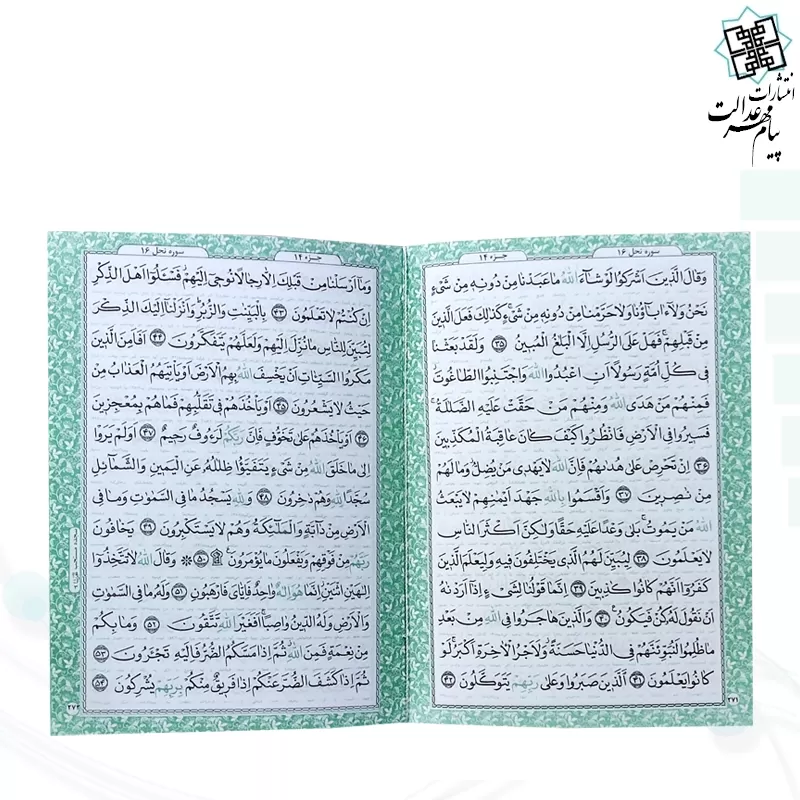 انتشارات
پیام مهر عدالت
سوره نحل ۱۶
جزء ۱۴
وَقالَ الَّذينَ اَشرَكوا لَو شآءَ اللهُ ما عَبَدنا مِن دونِهِ مِن شَیءٍ
نَحنُ وَلآ ءابآؤُنا وَلا حَرَّمنا مِن دونِهِ مِن شَیءٍ كَذٰلِكَ فَعَلَ الَّذينَ
مِن قَبلِهِم فَهَل عَلَی الرُّسُلِ اِلَّا البَلٰغُ المُبينُ ﴿۳۵﴾ وَلَقَد بَعَثنا
فی كُلِّ اُمَّةٍ رَسولًا اَنِ اعبُدُوا اللهَ وَاجتَنِبُوا الطّاغوتَ
فَمِنهُم مَن هَدَی اللهُ وَمِنهُم مَن حَقَّت عَلَيهِ الضَّلٰلَةُ
فَسيروا فِی الاَرضِ فَانظُروا كَيفَ كانَ عاقِبَةُ المُكَذِّبينَ
﴿۳۶﴾ اِن تَحرِص عَلیٰ هُدىٰهُم فَاِنَّ اللهَ لا يَهدی مَن يُضِلُّ وَما لَهُم
مِن نٰصِرينَ ﴿۳۷﴾ وَاَقسَموا بِاللهِ جَهدَ اَيمٰنِهِم لا يَبعَثُ
اللهُ مَن يَموتُ بَلیٰ وَعدًا عَلَيهِ حَقًّا وَلٰكِنَّ اَكثَرَ النّاسِ
لا يَعلَمونَ ﴿۳۸﴾ لِيُبَيِّنَ لَهُمُ الَّذی يَختَلِفونَ فيهِ وَلِيَعلَمَ الَّذينَ
كَفَروا اَنَّهُم كانوا كٰذِبينَ ﴿۳۹﴾ اِنَّما قَولُنا لِشَیءٍ اِذآ اَرَدنٰهُ
اَن نَقولَ لَهُ كُن فَيَكونُ ﴿۴۰﴾ وَالَّذينَ هاجَروا فِی اللهِ مِن بَعدِ
ما ظُلِموا لَنُبَوِّئَنَّهُم فِی الدُّنيا حَسَنَةً وَلَاَجرُ الاٰخِرَةِ اَكبَرُ لَو
كانوا يَعلَمونَ ﴿۴۱﴾ اَلَّذينَ صَبَروا وَعَلیٰ رَبِّهِم يَتَوَكَّلونَ ﴿۴۲﴾
۲۷۱
جزء ۱۴
سوره نحل ۱۶
وَمآ اَرسَلنا مِن قَبلِكَ اِلّا رِجالًا نوحی اِلَيهِم فَسـَٔلوٓا اَهلَ الذِّكرِ
اِن كُنتُم لا تَعلَمونَ ﴿۴۳﴾ بِالبَيِّنٰتِ وَالزُّبُرِ وَاَنزَلنآ اِلَيكَ الذِّكرَ
لِتُبَيِّنَ لِلنّاسِ ما نُزِّلَ اِلَيهِم وَلَعَلَّهُم يَتَفَكَّرونَ ﴿۴۴﴾ اَفَاَمِنَ الَّذينَ
مَكَرُوا السَّيِّـٔاتِ اَن يَخسِفَ اللهُ بِهِمُ الاَرضَ اَو يَأتِيَهُمُ العَذابُ مِن
حَيثُ لا يَشعُرونَ ﴿۴۵﴾ اَو يَأخُذَهُم فی تَقَلُّبِهِم فَما هُم بِمُعجِزينَ
﴿۴۶﴾ اَو يَأخُذَهُم عَلیٰ تَخَوُّفٍ فَاِنَّ رَبَّكُم لَرَءوفٌ رَحيمٌ ﴿۴۷﴾ اَوَلَم يَرَوا
اِلیٰ ما خَلَقَ اللهُ مِن شَیءٍ يَتَفَيَّؤُا ظِلٰلُهُ عَنِ اليَمينِ وَالشَّمآئِلِ
سُجَّدًا لِلّٰهِ وَهُم دٰخِرونَ ﴿۴۸﴾ وَلِلّٰهِ يَسجُدُ ما فِی السَّمٰوٰتِ وَما فِی
الاَرضِ مِن دآبَّةٍ وَالمَلٰٓئِكَةُ وَهُم لا يَستَكبِرونَ ﴿۴۹﴾ يَخافونَ
رَبَّهُم مِن فَوقِهِم وَيَفعَلونَ ما يُؤمَرونَ ۩ ﴿۵۰﴾ وَقالَ اللهُ لا تَتَّخِذوٓا
اِلٰهَينِ اثنَينِ اِنَّما هُوَ اِلٰهٌ واحِدٌ فَاِيّٰیَ فَارهَبونِ ﴿۵۱﴾ وَلَهُ ما فِی السَّمٰوٰتِ
وَالاَرضِ وَلَهُ الدّينُ واصِبًا اَفَغَيرَ اللهِ تَتَّقونَ ﴿۵۲﴾ وَما بِكُم
مِن نِعمَةٍ فَمِنَ اللهِ ثُمَّ اِذا مَسَّكُمُ الضُّرُّ فَاِلَيهِ تَجـَٔرونَ ﴿۵۳﴾
ثُمَّ اِذا كَشَفَ الضُّرَّ عَنكُم اِذا فَريقٌ مِنكُم بِرَبِّهِم يُشرِكونَ ﴿۵۴﴾
۲۷۲